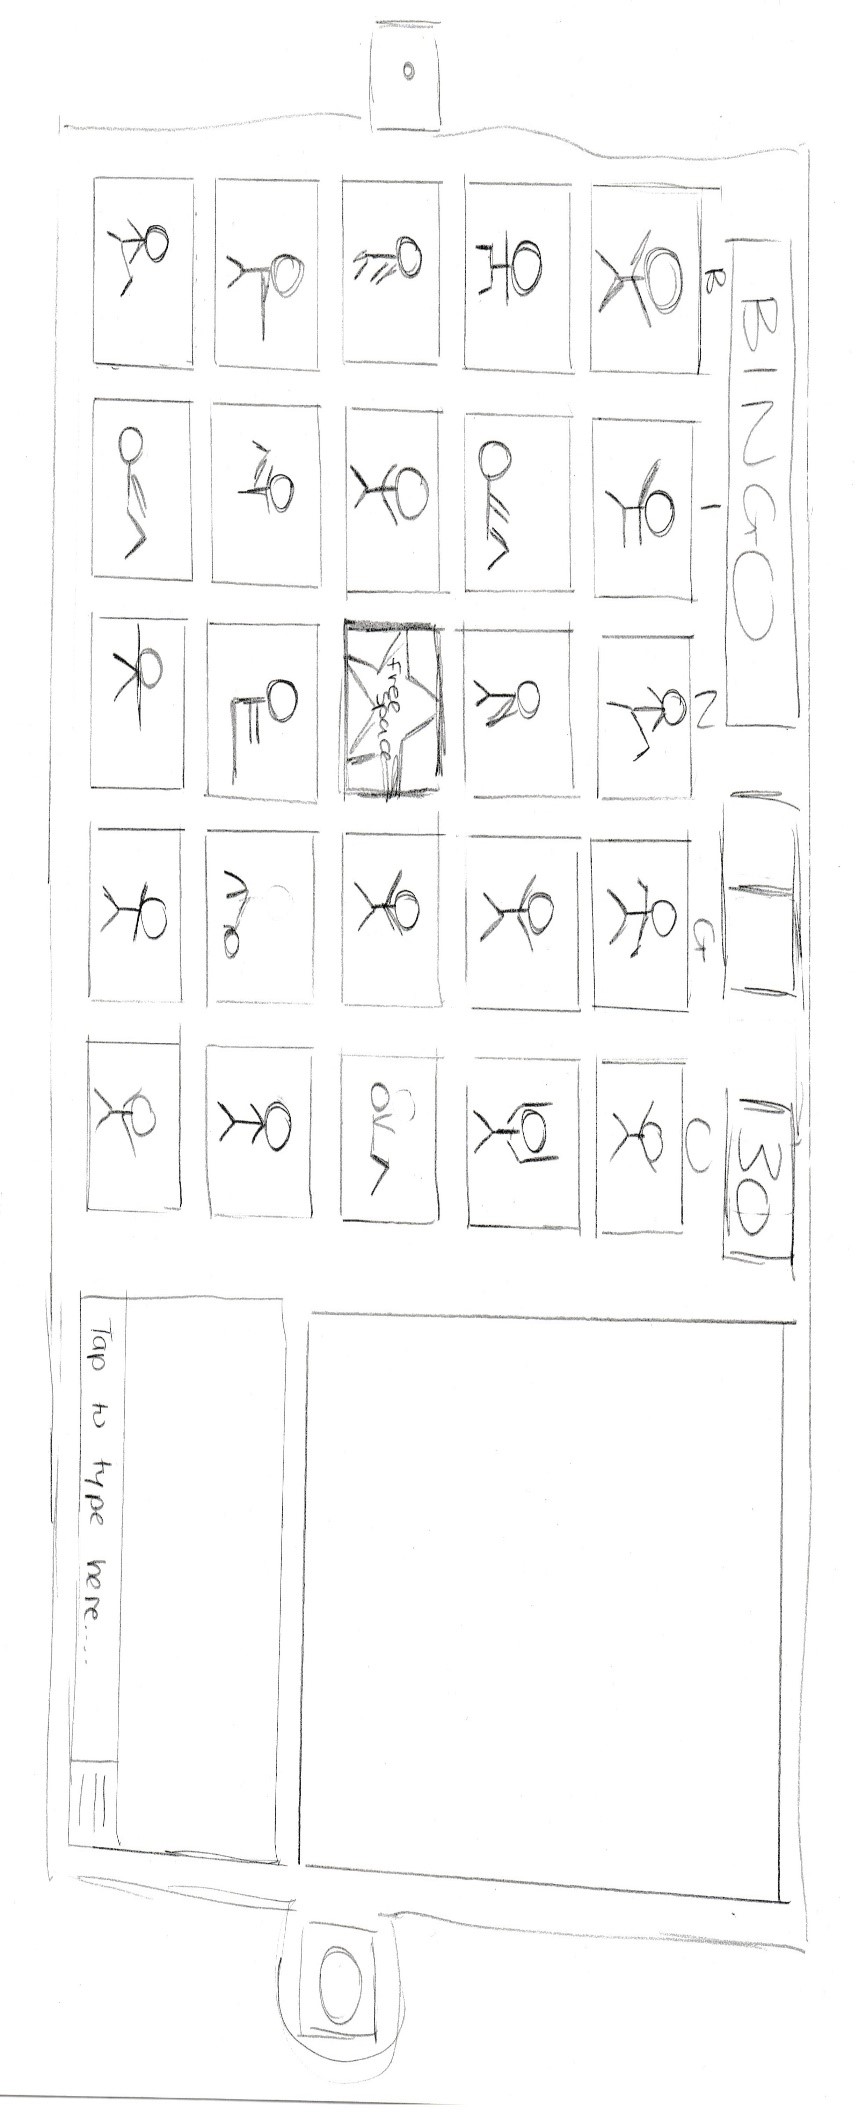 BINGO
30
B I N G O
free space
Tap to type here.....